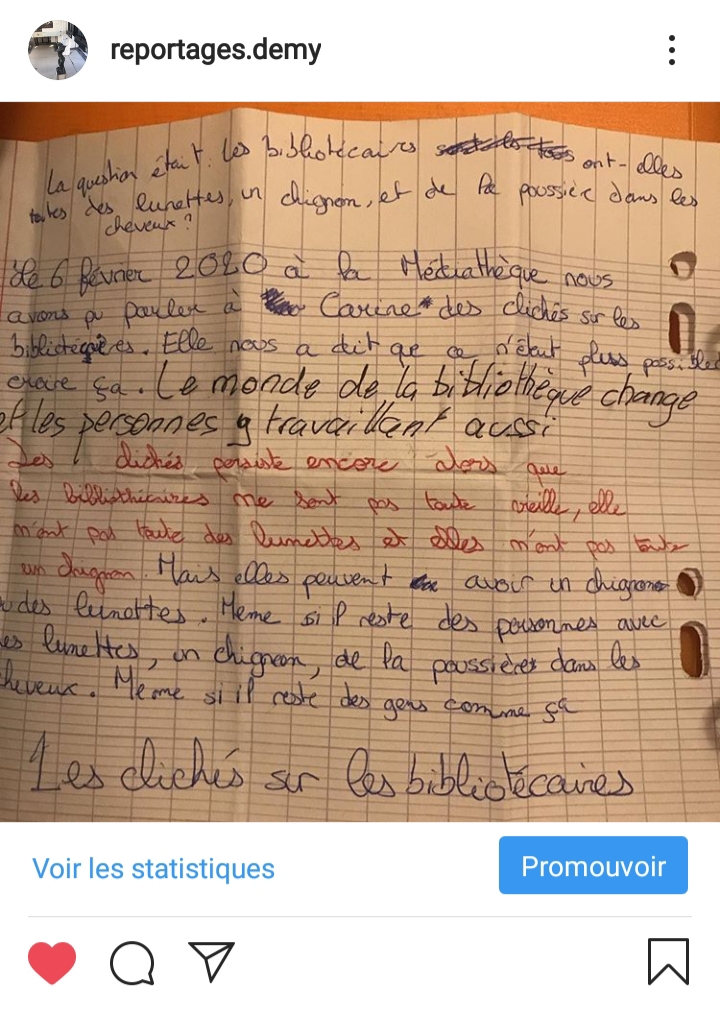 reportages.demy
La question était : les bibliotécaires ont-elles
toutes des lunettes, un chignon, et de la poussière dans les
cheveux ?
Le 6 février 2020 à la Médiathèque nous
avons pu parler à Carine* des clichés sur les
bibliotécaires. Elle nous a dit que ce n'était plus possible
croire ça. Le monde de la bibliothèque change
et les personnes y travaillant aussi
Les clichés persiste encore alors que
les bibliothécaires ne sont pas toute vieille, elle
n'ont pas toute des lunettes et elles n'ont pas toute
un chignon. Mais elles peuvent avoir un chignon
des lunettes. Meme si il reste des personnes avec
es lunettes, un chignon, de la poussières dans les
heveux. Meme si il reste des gens comme ça
Les clichés sur les bibliotécaires
Voir les statistiques
Promouvoir